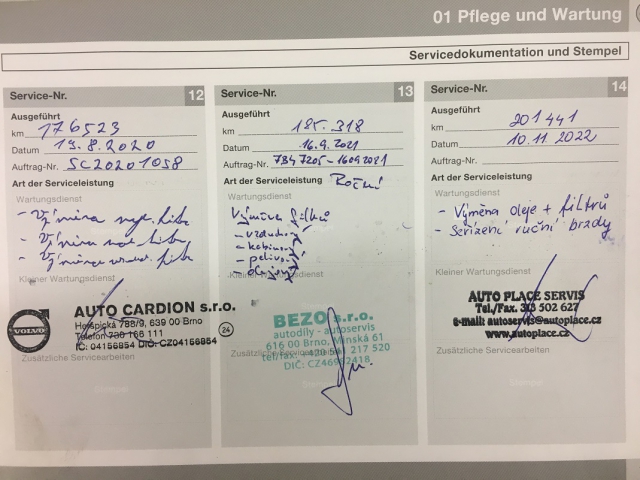 01 Pflege und Wartung
Servicedokumentation und Stempel
Service-Nr. 12
Ausgeführt
km 176523
Datum 19.8.2020
Auftrag-Nr. SC20201058
Art der Serviceleistung
Wartungsdienst
- Výměna
- Výměna
- Výměna
Kleiner Wartungsdienst
VOLVO
AUTO CARDION s.r.o.
Heršpická 788/9, 639 00 Brno
Telefon 738 166 111
IČ: 04156854 DIČ: CZ04156854
24
Zusätzliche Servicearbeiten
Service-Nr. 13
Ausgeführt
km 185.318
Datum 16.9.2021
Auftrag-Nr. 7847205-16092021
Art der Serviceleistung Roční
Wartungsdienst
Výměna filtrů
- vzduchový
- kabinový
- palivový
- olejový
Kleiner Wartungsdienst
BEZO s.r.o.
autodíly - autoservis
616 00 Brno, Minská 61
tel/fax: 217 520
Zusätzliche Servicearbeiten
Service-Nr. 14
Ausgeführt
km 201441
Datum 10.11.2022
Auftrag-Nr.
Art der Serviceleistung
Wartungsdienst
- Výměna oleje + filtrů
- Seřízení ruční brzdy
Kleiner Wartungsdienst
AUTO PLACE SERVIS
Tel./Fax. 313 502 627
e-mail: autoservis@autoplace.cz
www.autoplace.cz
Zusätzliche Servicearbeiten